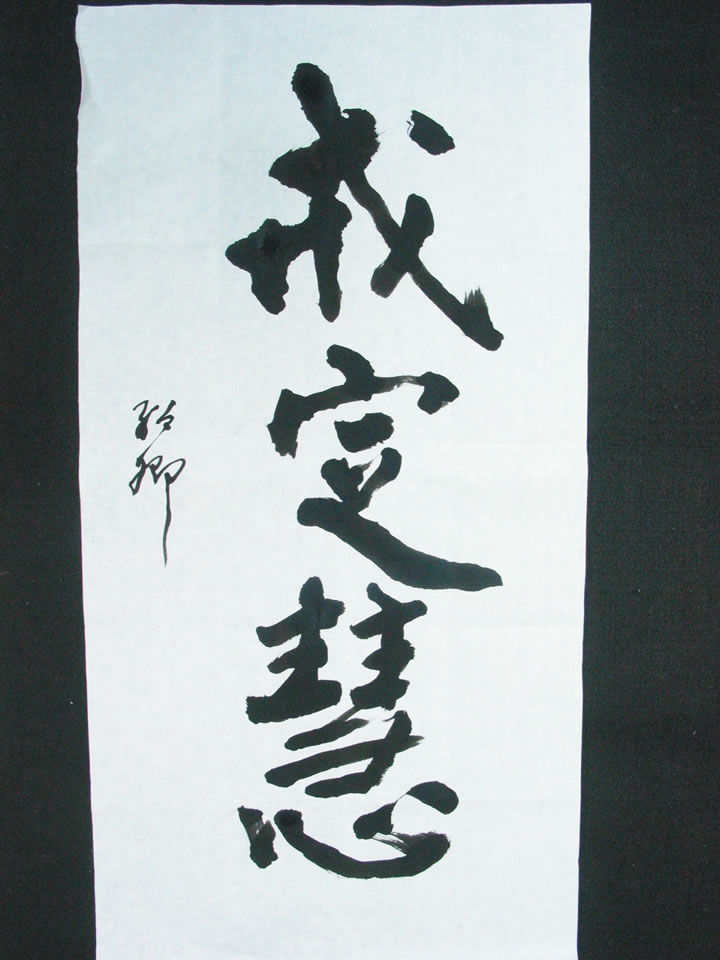 戒定慧
卿